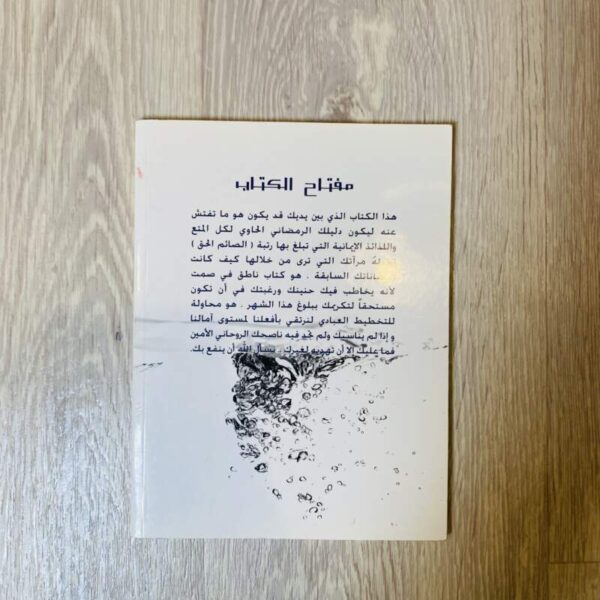 مفتاح الكتاب
هذا الكتاب الذي بين يديك قد يكون هو ما تفتش
عنه ليكون دليلك الرمضاني الحاوي لكل المتع
واللذائذ الإيمانية التي تبلغ بها رتبة ( الصائم الحق )
مرآتك التي ترى من خلالها كيف كانت
السابقة . هو كتاب ناطق في صمت
لأنه يخاطب فيك حنينك ورغبتك في أن تكون
مستحقاً لتكريمك ببلوغ هذا الشهر . هو محاولة
للتخطيط العبادي لنرتقي بأفعالنا لمستوى آمالنا
وإذا لم يناسبك ولم تجد فيه ناصحك الروحاني الأمين
فما عليك إلا أن تهديه لغيرك . نسأل الله أن ينفع بك.